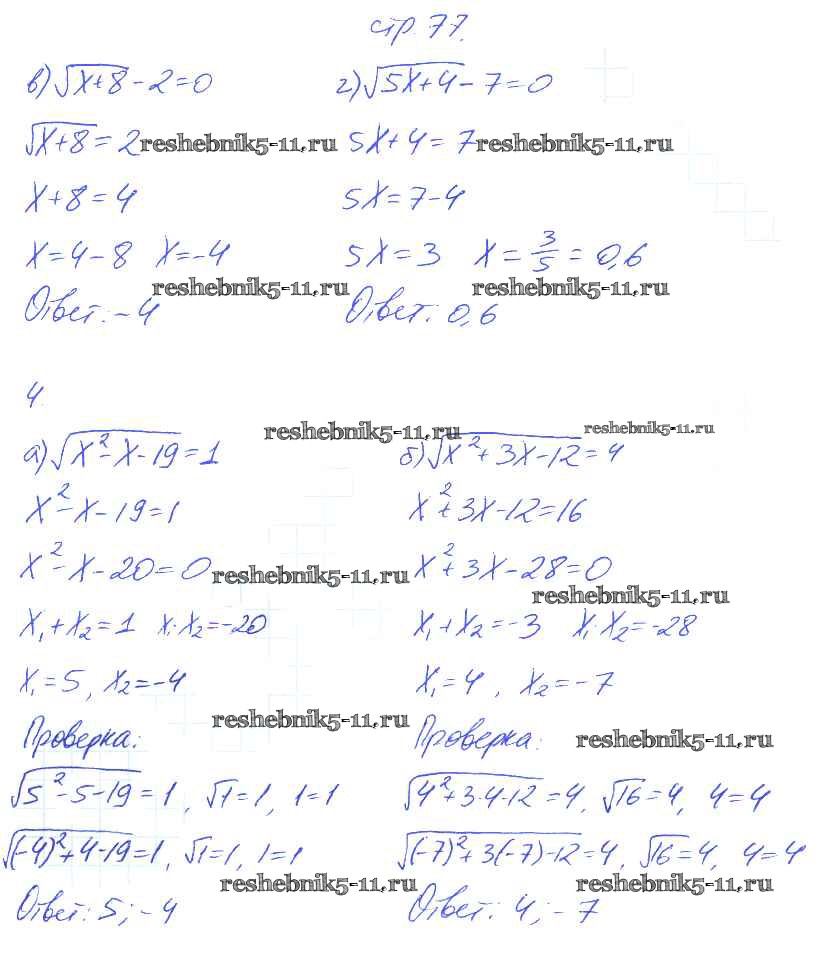 стр. 77.
в) √(x+8) - 2 = 0
√(x+8) = 2 reshebnik5-11.ru
x+8 = 4
x = 4-8 x = -4
reshebnik5-11.ru
Ответ: -4
г) √(5x+4) - 7 = 0
5x+4 = 7 reshebnik5-11.ru
5x = 7-4
5x = 3 x = 3/5 = 0,6
reshebnik5-11.ru
Ответ: 0,6
4.
reshebnik5-11.ru
а) √(x²-x-19) = 1
x²-x-19 = 1
x²-x-20 = 0 reshebnik5-11.ru
x₁+x₂ = 1 x₁·x₂ = -20
x₁ = 5, x₂ = -4
reshebnik5-11.ru
Проверка:
√(5²-5-19) = 1, √1 = 1, 1 = 1
√((-4)²+4-19) = 1, √1 = 1, 1 = 1
reshebnik5-11.ru
Ответ: 5; -4
reshebnik5-11.ru
б) √(x²+3x-12) = 4
x²+3x-12 = 16
x²+3x-28 = 0
reshebnik5-11.ru
x₁+x₂ = -3 x₁·x₂ = -28
x₁ = 4, x₂ = -7
Проверка: reshebnik5-11.ru
√(4²+3·4-12) = 4, √16 = 4, 4 = 4
√((-7)²+3(-7)-12) = 4, √16 = 4, 4 = 4
reshebnik5-11.ru
Ответ: 4; -7